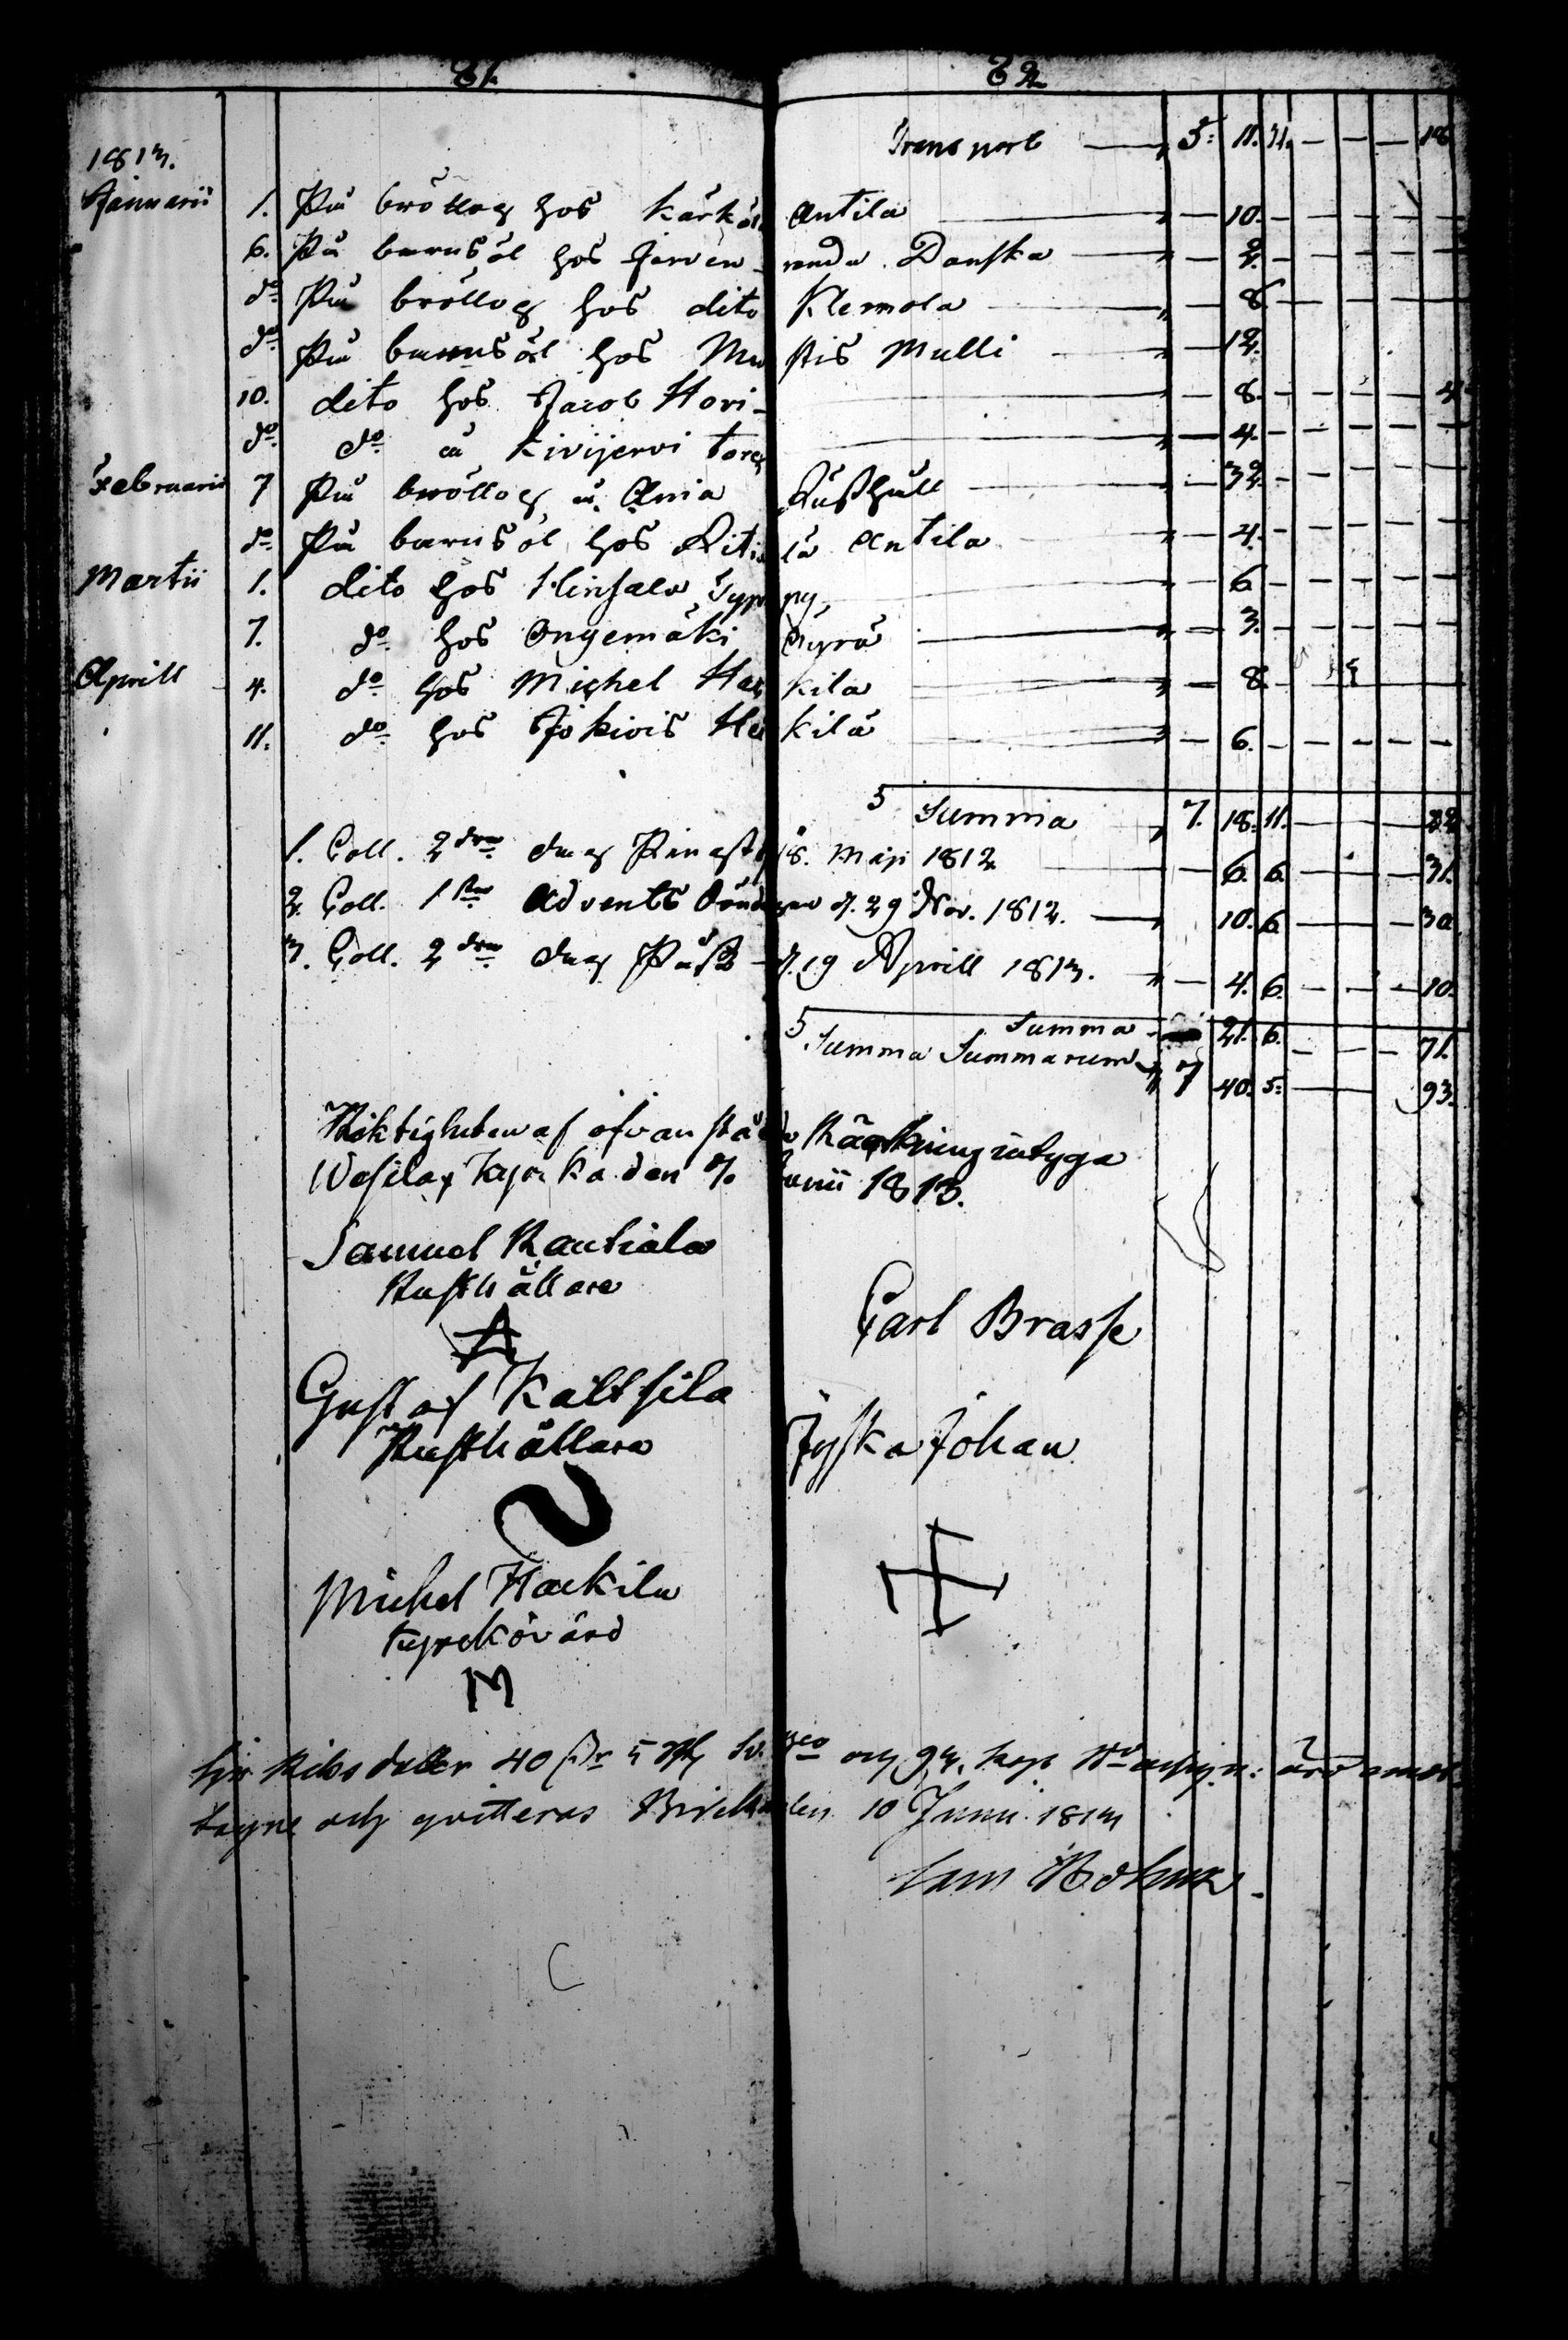 81. 82
Transport 5: 11. 11. — — — 18
1813.
Januarii 1. På bröllop hos Kärkölä Antila — 10. — — — —
6. På barnsöl hos Järven randa Danska — 2. — — — —
do På bröllop hos dito Klemola — 8 — — — —
do På barnsöl hos Mustis Mulli — 12.
10. dito hos Jacob Hori — 8. — — — 4
do do å Kivijervi torp — 4. — — — —
Februarii 7 På bröllop å Ania Rusthåll — 32. — — — —
do På barnsöl hos Antila — 4. — — — —
Martii 1. dito hos Hinsala — 6 — — — —
7. do hos Ongemäki Äyrä — 3. — — — —
Aprill 4. do hos Michel Hackila — 8
11. do hos Jokivis Hackilä — 6. — — — —
Summa 7. 18. 11. — — 22
1. Coll. 2dra dag Pingst 18. Maji 1812 — 6. 6. — — — 31.
2. Coll. 1sta Advents Söndagen d. 29 Nov. 1812. — 10. 6 — — — 30
3. Coll. 2dra dag Påsk d. 19 Aprill 1813. — 4. 6. — — — 10.
Summa 21. 6. — — — 71.
Summa Summarum 7 40. 5: — — 93.
Riktigheten af ofvanstående Räkning intyga
Wesilax Kyrka den 7. Junii 1813.
Samuel Rautiala
Rusthållare
Carl Brasse
Gustaf Kaltsila
Rusthållare
Jyska Johan
Michel Hackila
kyrckovärd
M
Riksdaler 40 5 och 93. kop. äro emot
tagne och qvitteras 10 Junii 1813